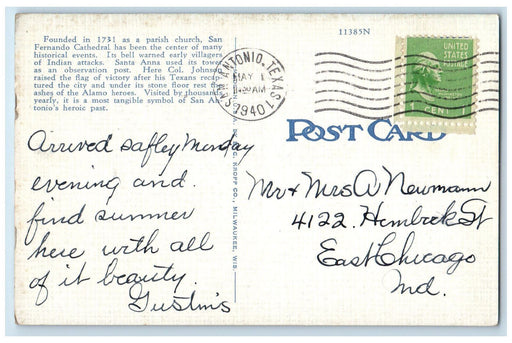 Founded in 1731 as a parish church, San
Fernando Cathedral has been the center of many
historical events. Its bell warned early villagers
of Indian attacks. Santa Anna used its tower
as an observation post. Here Col. Johnson
raised the flag of victory after his Texans recap-
tured the city and under its stone floor rest the
ashes of the Alamo heroes. Visited by thousands
yearly, it is a most tangible symbol of San An-
tonio's heroic past.
11385N
SAN ANTONIO, TEXAS
MAY 1
AM
1940
UNITED
STATES
POSTAGE
1 CENT
POST CARD
KROPP CO., MILWAUKEE, WIS.
Arrived safley Monday
evening and
find summer
here with all
of it beauty.
Gustin's
Mr & Mrs A Neumann
4122 Hembrek St
East Chicago
Ind.